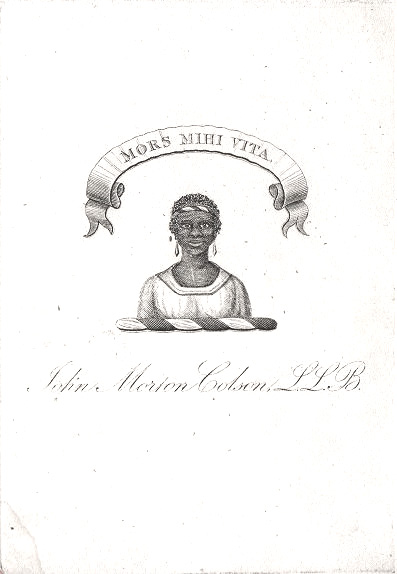 MORS MIHI VITA.
John Morton Colson, L.L.B.